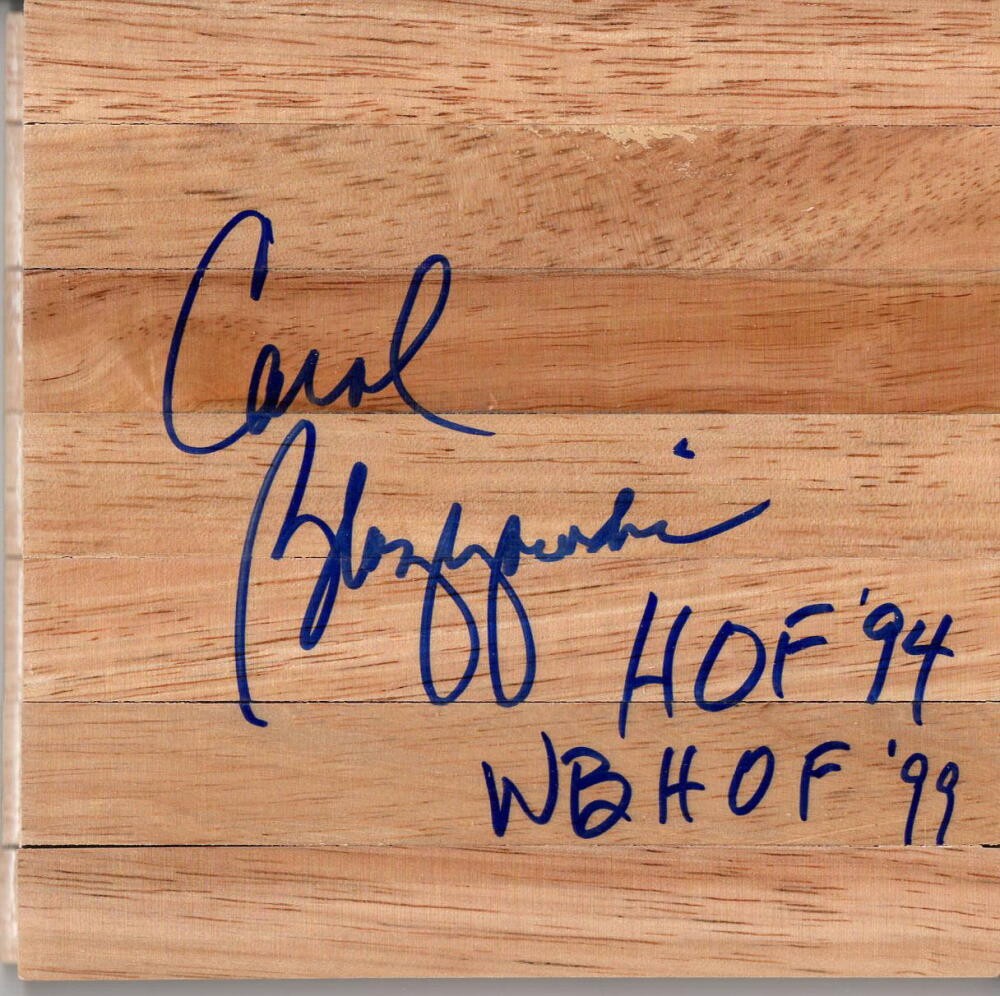 Carol
Blazejowski
HOF '94
WBHOF '99